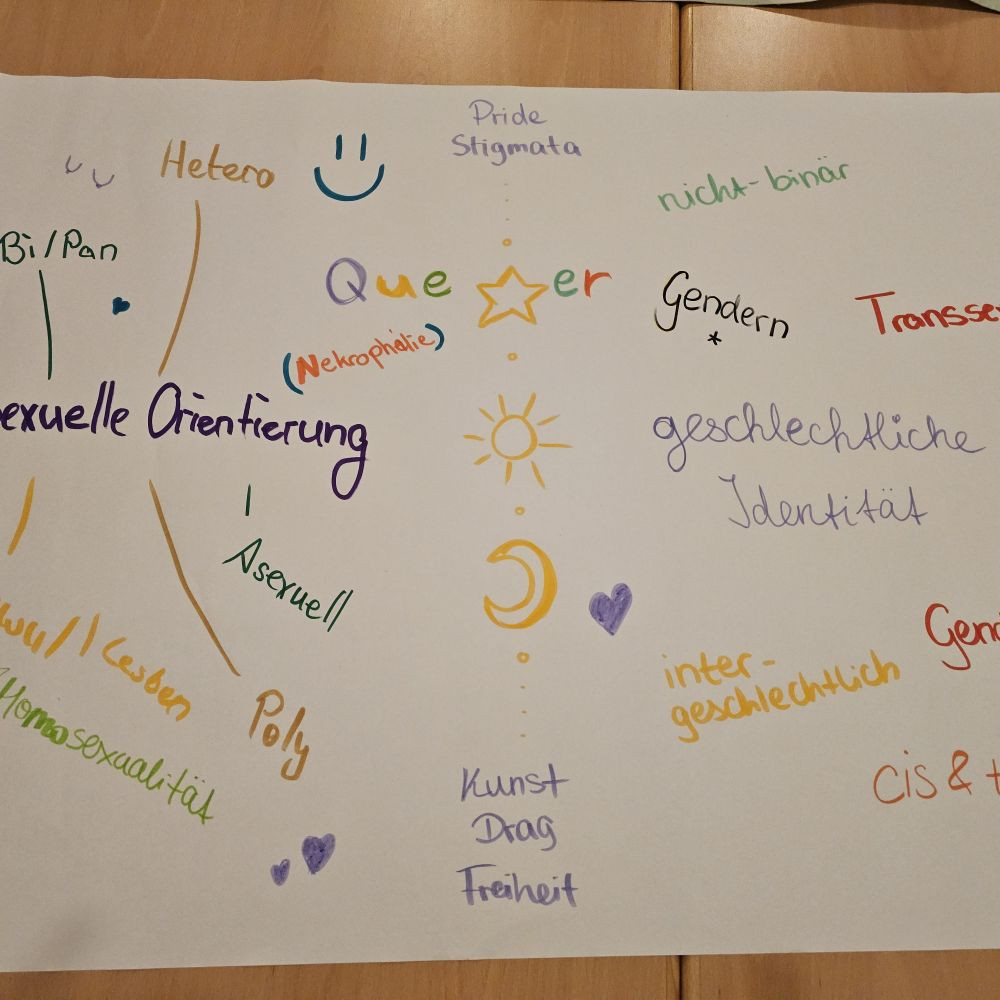 Pride
Stigmata
Hetero
nicht-binär
Bi/Pan
Que er
Gendern
*
Transse
(Nekrophilie)
exuelle Orientierung
geschlechtliche
Identität
Asexuell
wul/Lesben
Homosexualität
Poly
inter-
geschlechtlich
Gend
cis & t
Kunst
Drag
Freiheit